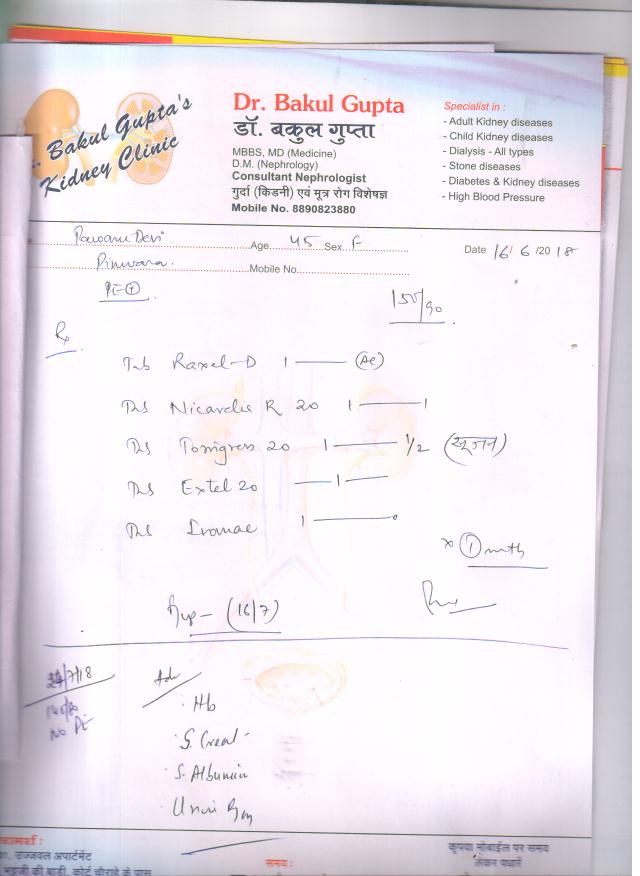 Bakul Gupta's
Kidney Clinic
Dr. Bakul Gupta
डॉ. बकुल गुप्ता
MBBS, MD (Medicine)
D.M. (Nephrology)
Consultant Nephrologist
गुर्दा (किडनी) एवं मूत्र रोग विशेषज्ञ
Mobile No. 8890823880
Specialist in :
- Adult Kidney diseases
- Child Kidney diseases
- Dialysis - All types
- Stone diseases
- Diabetes & Kidney diseases
- High Blood Pressure
Devi Age 45 Sex F
Date 16/6/2018
Pinwara. Mobile No.
150/90
Rx
Tab Raxel-D 1 —— (AC)
Nicardie R 20 1 —— 1
20 1 —— 1/2 (सूजन)
Extel 20 —— 1 ——
1 ——
x 1 mth
(16/7)
/7/18 Adv
Hb
No PE
S. Creat
S. Albumin
परामर्श :
उज्जवल अपार्टमेंट
समय :
कृपया मोबाईल पर समय
लेकर पधारें